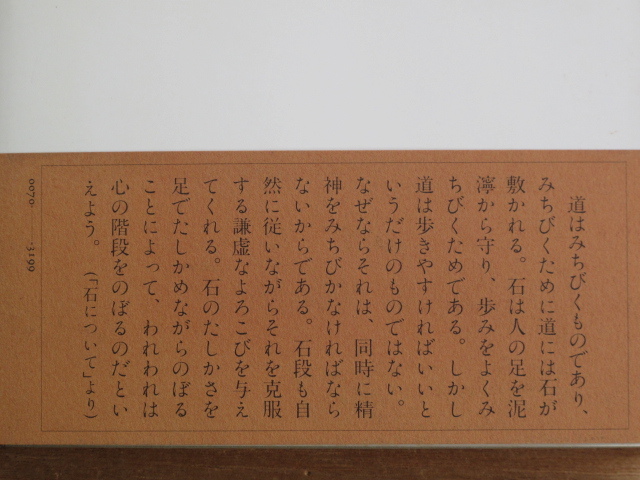 道はみちびくものであり、
みちびくために道には石が
敷かれる。石は人の足を泥
濘から守り、歩みをよくみ
ちびくためである。しかし
道は歩きやすければいいと
いうだけのものではない。
なぜならそれは、同時に精
神をみちびかなければなら
ないからである。石段も自
然に従いながらそれを克服
する謙虚なよろこびを与え
てくれる。石のたしかさを
足でたしかめながらのぼる
ことによって、われわれは
心の階段をのぼるのだとい
えよう。（「石について」より）
0070- -3199